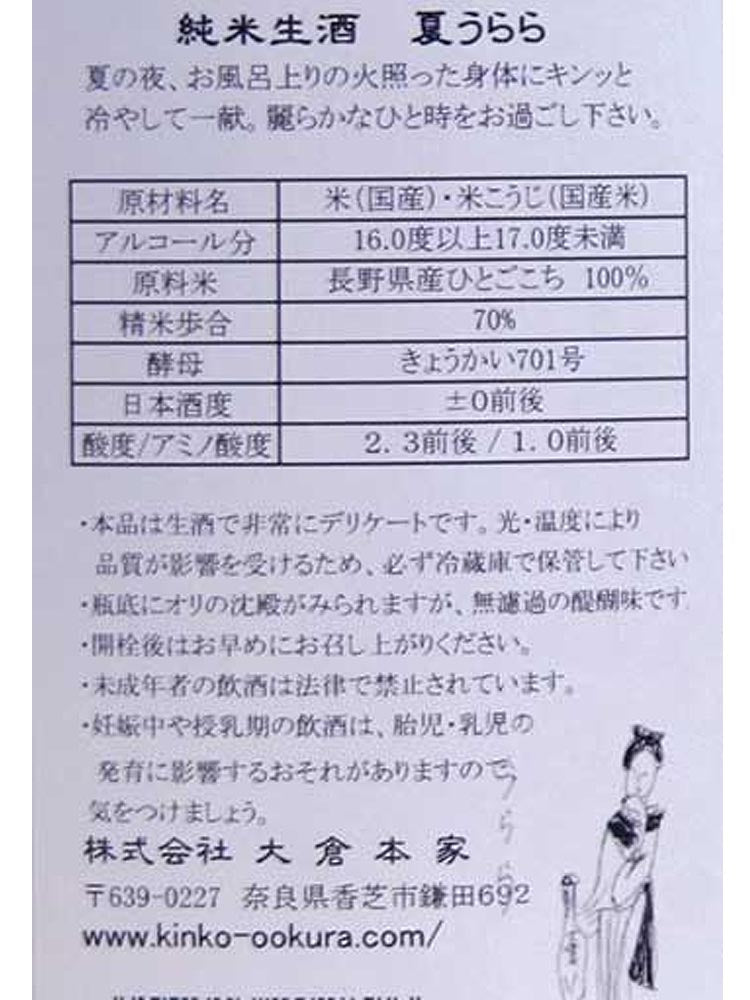 純米生酒　夏うらら
夏の夜、お風呂上りの火照った身体にキンッと
冷やして一献。麗らかなひと時をお過ごし下さい。
原材料名　米(国産)・米こうじ(国産米)
アルコール分　16.0度以上17.0度未満
原料米　長野県産ひとごこち 100%
精米歩合　70%
酵母　きょうかい701号
日本酒度　±0前後
酸度/アミノ酸度　2.3前後 / 1.0前後
・本品は生酒で非常にデリケートです。光・温度により
品質が影響を受けるため、必ず冷蔵庫で保管して下さい
・瓶底にオリの沈殿がみられますが、無濾過の醍醐味です
・開栓後はお早めにお召し上がりください。
・未成年者の飲酒は法律で禁止されています。
・妊娠中や授乳期の飲酒は、胎児・乳児の
発育に影響するおそれがありますので、
気をつけましょう。
うらら
株式会社 大倉本家
〒639-0227 奈良県香芝市鎌田692
www.kinko-ookura.com/